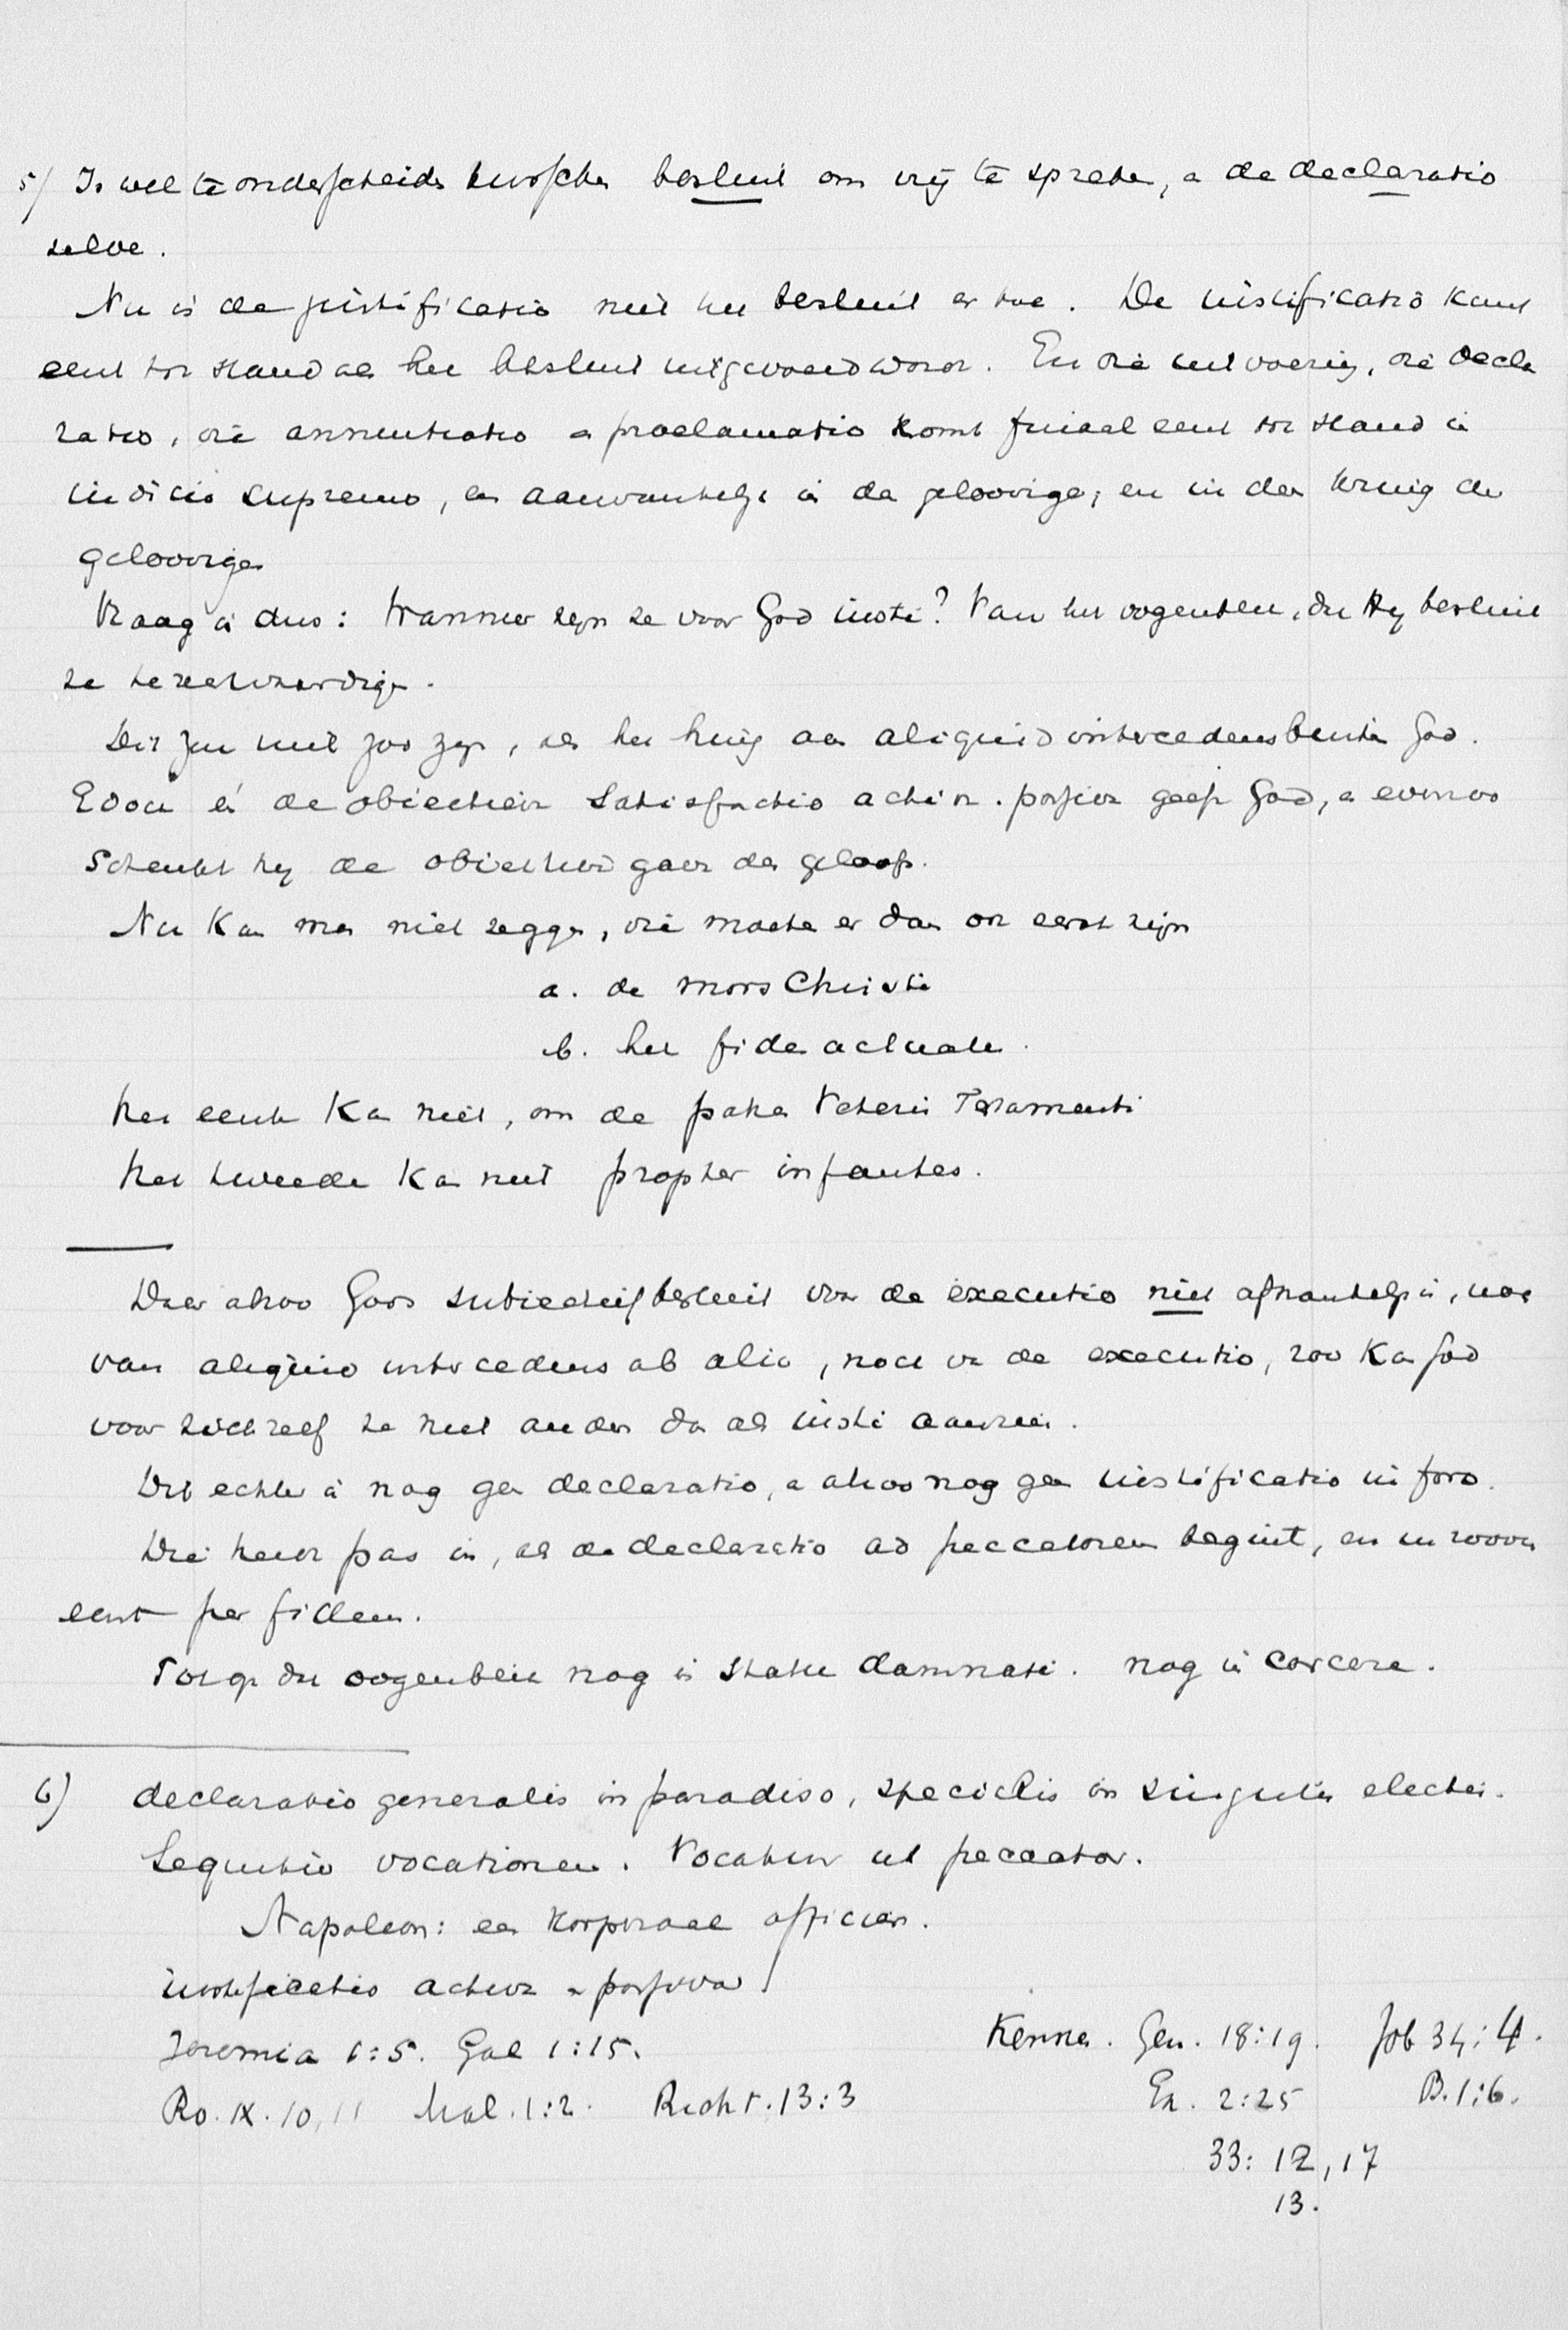 5/ Is wel te onderscheide tussche besluit om vrij te spreke, e de declaratio
selve.
Nu is de justificatio niet het besluit er toe. De iustificatio komt
eerst tot stand als het besluit uitgevoerd wordt. En die uitvoering, die decla
ratio, die annuntiatio e proclamatio komt finaal eerst tot stand in
iudicio supremo, en aanvankelijk in de geloovige, en in den kring der
geloovige
Vraag is dus: Wanneer zijn ze voor God iusti? Van het oogenblik, dat Hij besluit
ze te rechtvaardige.
Dit zou niet zoo zijn, als het hing aan aliquid intercedens buiten God.
Edoch én de obiectieve satisfactio activa. passiva geeft God, e evenzoo
schenkt hij de obiectieve gave des geloofs.
Nu kan men niet zegge, die moete er dan ook eerst zijn
a. de mors Christi
b. het fides actualis.
Het eerste kan niet, om de patres Veteris Testamenti
Het tweede kan niet propter infantes.
Daar alzoo Gods subiectief besluit van de executio niet afhankelijk is, noch
van aliquid intercedens ab alio, noch van de executio, zoo kan God
voor zichzelf ze niet anders dan als iusti aanzien.
Dit echter is nog geen declaratio, e alzoo nog geen iustificatio in foro.
Die treedt pas in, als de declaratio ad peccatorem begint, en
eerst per fidem.
Tot op dit oogenblik nog in statu damnati. nog in carcere.
6) declaratio generalis in paradiso, specialis in singulis electis.
Sequitur vocationem. Vocatur ut peccator.
Napoleon: een korporaal officier.
iustificatio activa e passiva
Jeremia 1:5. Gal 1:15.
Ro. IX. 10, 11 Mal. 1:2. Richt. 13:3
Kenne. Gen. 18:19. Job 34:4.
Ex. 2:25 Ps. 1:6.
33: 12, 17
13.